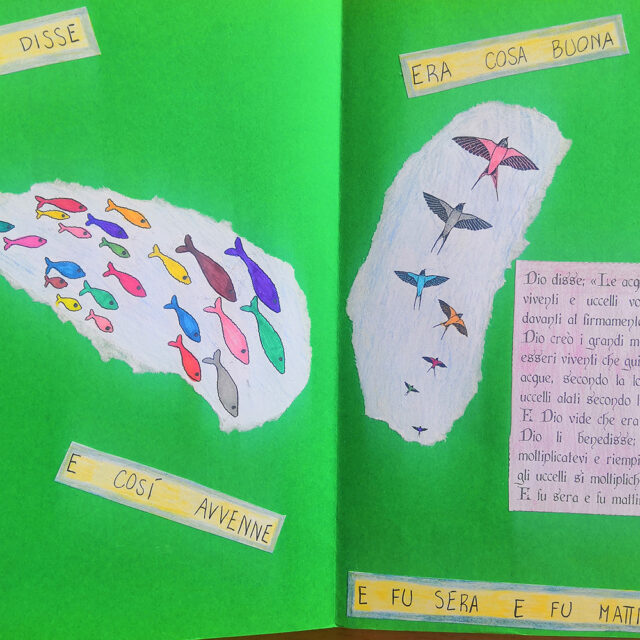 DISSE
ERA COSA BUONA
E COSÍ AVVENNE
Dio disse: «Le acq
viventi e uccelli vo
davanti al firmament
Dio creò i grandi m
esseri viventi che gui
acque, secondo la l
uccelli alati secondo
E Dio vide che era
Dio li benedisse:
moltiplicatevi e riempi
gli uccelli si moltiplich
E fu sera e fu matti
E FU SERA E FU MATTI